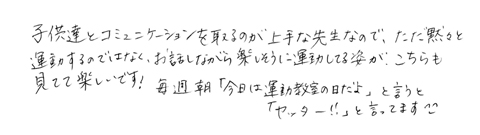 子供達とコミュニケーションを取るのが上手な先生なので、ただ黙々と
運動するのではなく、お話しながら楽しそうに運動してる姿が、こちらも
見てて楽しいです！ 毎週朝「今日は運動教室の日だよ」と言うと
「ヤッター!!」と言ってます^^